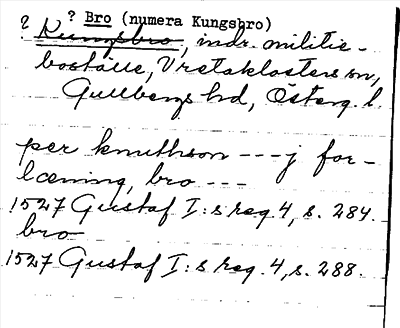 ? Bro (numera Kungsbro)
? Kungsbro, indr. militie-
boställe, Vretaklosters sn,
Gullbergs hd, Österg. l.
per knuthson --- j for-
læning, bro ---
1527 Gustaf I:s reg. 4, s. 284.
bro
1527 Gustaf I:s reg. 4, s. 288.